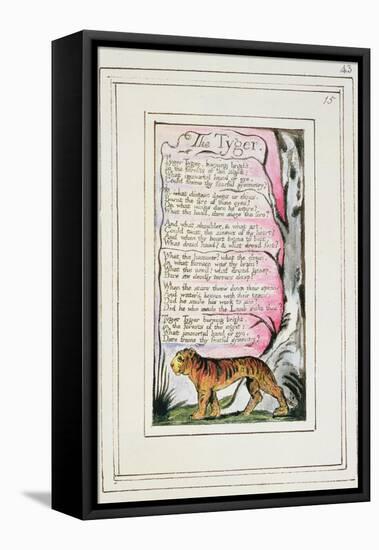 43
15
The Tyger.
Tyger Tyger, burning bright,
In the forests of the night;
What immortal hand or eye,
Could frame thy fearful symmetry?
In what distant deeps or skies
Burnt the fire of thine eyes?
On what wings dare he aspire?
What the hand, dare sieze the fire?
And what shoulder, & what art,
Could twist the sinews of thy heart?
And when thy heart began to beat,
What dread hand? & what dread feet?
What the hammer? what the chain,
In what furnace was thy brain?
What the anvil? what dread grasp,
Dare its deadly terrors clasp!
When the stars threw down their spears
And water'd heaven with their tears:
Did he smile his work to see?
Did he who made the Lamb make thee?
Tyger Tyger burning bright,
In the forests of the night:
What immortal hand or eye,
Dare frame thy fearful symmetry?